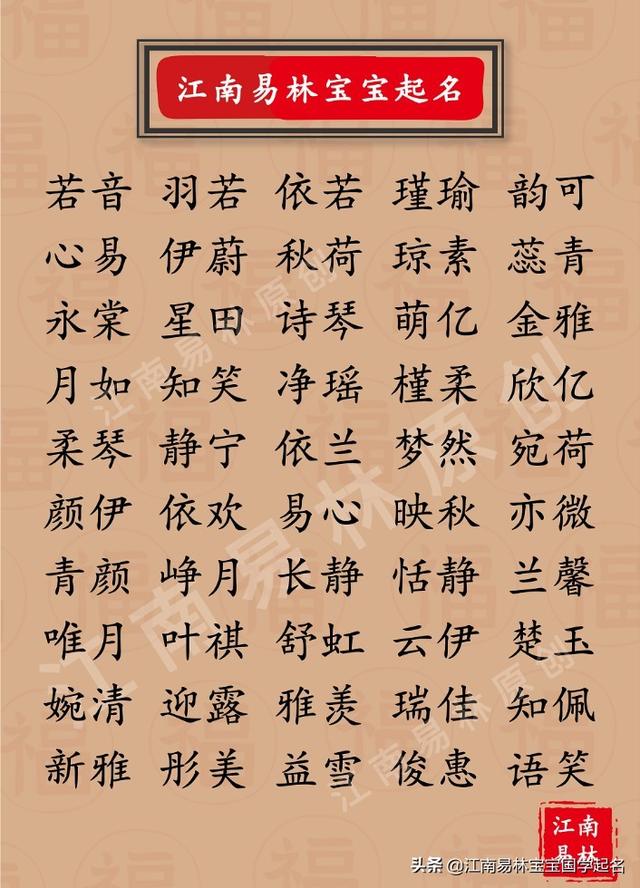 江南易林宝宝起名
若音 羽若 依若 瑾瑜 韵可
心易 伊蔚 秋荷 琼素 蕊青
永棠 星田 诗琴 萌亿 金雅
月如 知笑 净瑶 槿柔 欣亿
柔琴 静宁 依兰 梦然 宛荷
颜伊 依欢 易心 映秋 亦微
青颜 峥月 长静 恬静 兰馨
唯月 叶祺 舒虹 云伊 楚玉
婉清 迎露 雅羡 瑞佳 知佩
新雅 彤美 益雪 俊惠 语笑
江南易林原创
江南易林原创
江南易林原创
江南
易林
头条 @江南易林宝宝国学起名